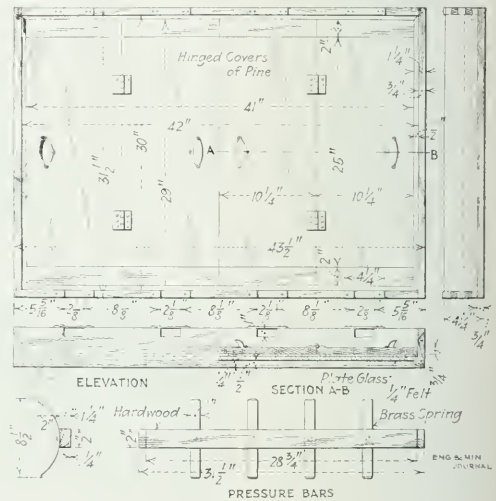 Hinged Covers
of Pine
2"
1 1/4"
3/4"
41"
42"
A
B
31 1/2"
30"
29"
25"
10 1/4"
10 1/4"
43 1/2"
2"
4 1/4"
5 5/16"
2 1/8"
8 1/8"
2 1/8"
8 1/8"
2 1/8"
8 1/8"
2 1/8"
5 5/16"
4 1/4"
3/4"
ELEVATION
SECTION A-B
Plate Glass
1/4" Felt
3/4"
Hardwood
Brass Spring
8 1/2"
2"
1/4"
2"
1/4"
1"
2"
28 3/4"
31 1/2"
ENG & MIN
JOURNAL
PRESSURE BARS